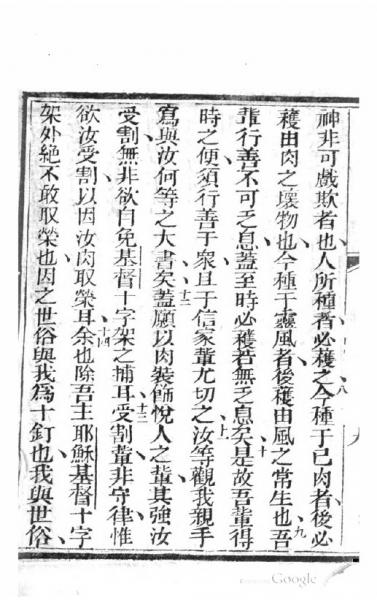 神非可戲欺者也人所種者必穫之今種于己肉者後必
八
穫由肉之壞物也今種于靈風者後穫由風之常生也吾
九
軰行善不可乏息蓋至時必穫若無乏息矣是故吾軰得
十
時之便須行善于衆且于信家軰尤切之汝等觀我親手
十一
寫與汝何等之大書矣蓋願以肉裝飾悅人之軰其強汝
十二
受割無非欲自免基督十字架之捕耳受割軰非守律惟
十三
欲汝受割以因汝肉取榮耳余也除吾主耶穌基督十字
十四
架外絕不敢取榮也因之世俗與我爲十釘也我與世俗
Google